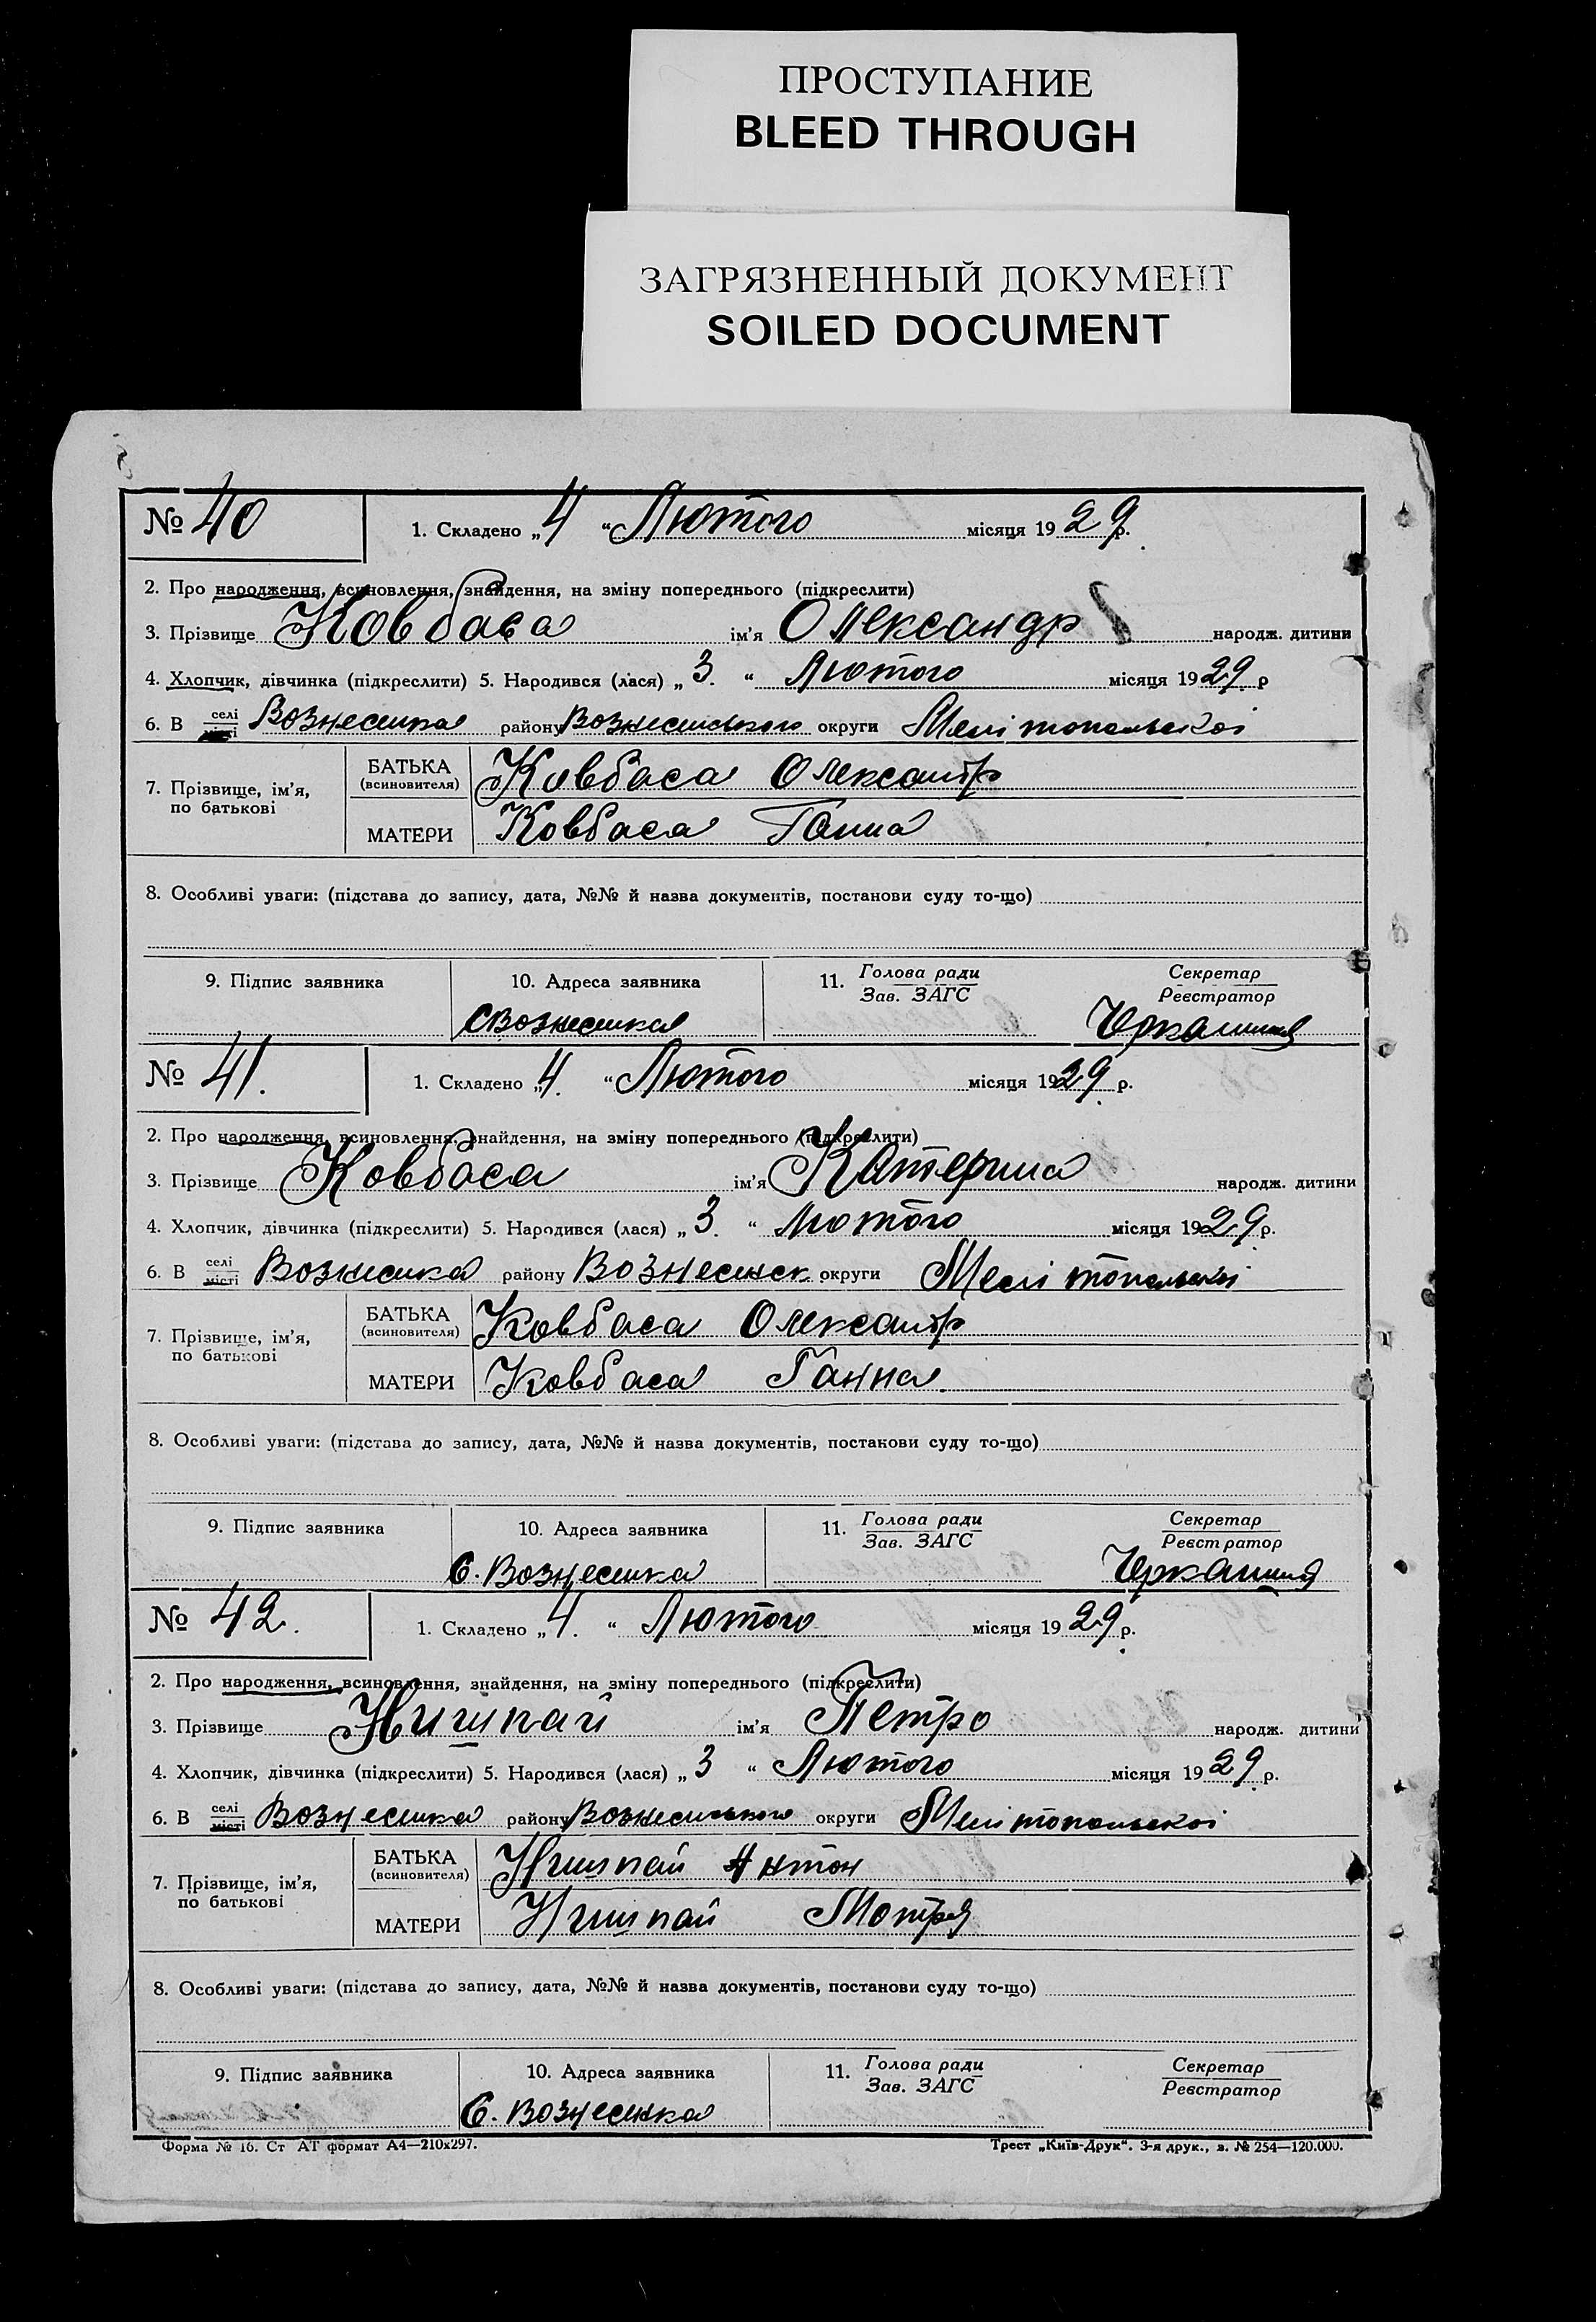 ПРОСТУПАНИЕ
BLEED THROUGH
ЗАГРЯЗНЕННЫЙ ДОКУМЕНТ
SOILED DOCUMENT
№ 40 1. Складено „4“ Лютого місяця 1929 р.
2. Про народження, всиновлення, знайдення, на зміну попереднього (підкреслити)
3. Прізвище Ковбаса ім’я Олександр народж. дитини
4. Хлопчик, дівчинка (підкреслити) 5. Народився (лася) „3.“ Лютого місяця 1929 р
6. В селі місті Вознесенка району Вознесенського округи Мелітопольскої
7. Прізвище, ім’я, по батькові
БАТЬКА (всиновителя) Ковбаса Олександр
МАТЕРИ Ковбаса Ганна
8. Особливі уваги: (підстава до запису, дата, №№ й назва документів, постанови суду то-що)
9. Підпис заявника 10. Адреса заявника 11. Голова ради Зав. ЗАГС Секретар Реєстратор
С Вознесенка
№ 41. 1. Складено „4.“ Лютого місяця 1929 р.
2. Про народження, всиновлення, знайдення, на зміну попереднього (підкреслити)
3. Прізвище Ковбаса ім’я Катерина народж. дитини
4. Хлопчик, дівчинка (підкреслити) 5. Народився (лася) „3.“ Лютого місяця 1929 р.
6. В селі місті Вознесенка району Вознесенск округи Мелітопольскі
7. Прізвище, ім’я, по батькові
БАТЬКА (всиновителя) Ковбаса Олександр
МАТЕРИ Ковбаса Ганна.
8. Особливі уваги: (підстава до запису, дата, №№ й назва документів, постанови суду то-що)
9. Підпис заявника 10. Адреса заявника 11. Голова ради Зав. ЗАГС Секретар Реєстратор
С. Вознесенка
№ 42. 1. Складено „4.“ Лютого місяця 1929 р.
2. Про народження, всиновлення, знайдення, на зміну попереднього (підкреслити)
3. Прізвище Нишпай ім’я Петро народж. дитини
4. Хлопчик, дівчинка (підкреслити) 5. Народився (лася) „3“ Лютого місяця 1929 р.
6. В селі місті Вознесенка району Вознесенського округи Мелітопольскої
7. Прізвище, ім’я, по батькові
БАТЬКА (всиновителя) Нишпай Антон
МАТЕРИ Нишпай Мотря
8. Особливі уваги: (підстава до запису, дата, №№ й назва документів, постанови суду то-що)
9. Підпис заявника 10. Адреса заявника 11. Голова ради Зав. ЗАГС Секретар Реєстратор
С. Вознесенка
Форма № 16. Ст АТ формат А4—210х297. Трест „Київ-Друк“. 3-я друк., з. № 254—120.000.